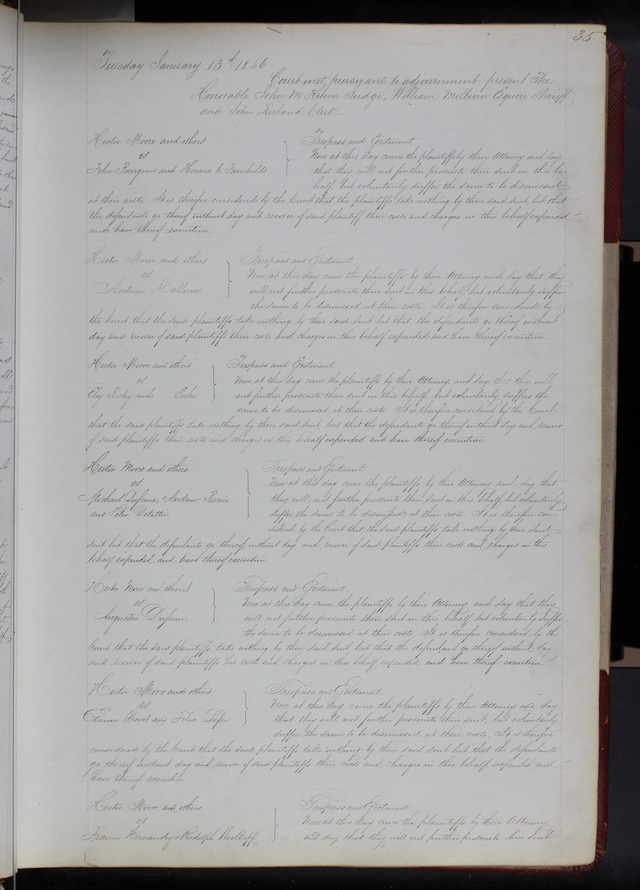 35
Tuesday January 13th 1846
Court met, pursuant to adjournment present The
Honorable John M Krum Judge, William Milburn Esquire Sheriff
and John Ruland Clerk
Hester Moore and others
vs
and Hiram C Fairchilds
Trespass and Ejectment
Now at this day come the plaintiffs by their Attorney and say
that they will not further prosecute their suit in this be
half but voluntarily suffer the same to be dismissed
at their costs. It is therefore considered by the Court that the plaintiffs take nothing by their said suit, but that
the defendants go thereof without day and recover of said plaintiff their costs and charges in this behalf expended
and have thereof execution.
Hester Moore and others
vs
Andrew
Trespass and Ejectment
Now at this day come the plaintiffs by their Attorney and say that they
will not further prosecute their suit in this behalf, but voluntarily suffer
the same to be dismissed at their costs. It is therefore considered by
the Court that the said plaintiffs take nothing by their said suit but that the defendants go thereof without
day and recover of said plaintiffs their costs and charges in this behalf expended and have thereof execution.
Hester Moore and others
vs
and
Trespass and Ejectment
Now at this day come the plaintiffs by their Attorney and say that they will
not further prosecute their suit in this behalf, but voluntarily suffer the
same to be dismissed at their costs. It is therefore considered by the Court
that the said plaintiffs take nothing by their said suit, but that the defendants go thereof without day and recover
of said plaintiffs their costs and charges in this behalf expended and have thereof execution.
Hester Moore and others
vs
Michael Dufrene, Andrew
and Peter
Trespass and Ejectment
Now at this day come the plaintiffs by their Attorney and say that
they will not further prosecute their suit in this behalf but voluntarily
suffer the same to be dismissed at their costs. It is therefore con
sidered by the Court that the said plaintiffs take nothing by their said
suit but that the defendants go thereof without day and recover of said plaintiffs their costs and charges in this
behalf expended and have thereof execution
Hester Moore and others
vs
Augustin Dufrene
Trespass and Ejectment
Now at this day come the plaintiffs by their Attorney and say that they
will not further prosecute their suit in this behalf but voluntarily suffer
the same to be dismissed at their costs. It is therefore considered by the
Court that the said plaintiffs take nothing by their said suit but that the defendant go thereof without day
and recover of said plaintiffs his costs and charges in this behalf expended and have thereof execution.
Hester Moore and others
vs
Etienne and
Trespass and Ejectment
Now at this day come the plaintiffs by their Attorney and say
that they will not further prosecute their suit, but voluntarily
suffer the same to be dismissed at their costs. It is therefore
considered by the Court that the said plaintiffs take nothing by their said suit but that the defendants
go thereof without day and recover of said plaintiffs their costs and charges in this behalf expended and
have thereof execution
Hester Moore and others
vs
Francis Hernandez & Rudolph
Trespass and Ejectment
Now at this day come the plaintiffs by their Attorney
and say that they will not further prosecute their suit